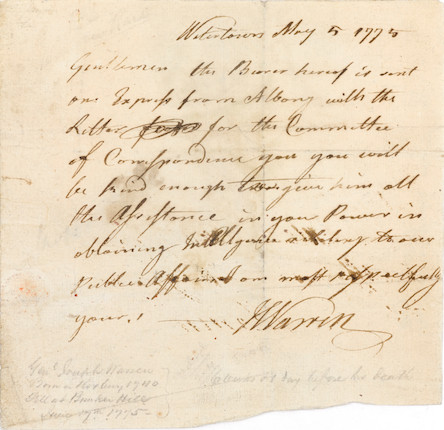 Watertown May 5 1775
Gentlemen the Bearer hereof is sent
on Express from Albany with the
Letter for the Committee
of Correspondence you you will
be kind enough give him all
the Assistance in you Power in
obtaining Intelligence relating to our
Publick Affairs I am most respectfully
your,
J Warren
Genl Joseph Warren
Born in Roxbury 1740
Fell at Bunker Hill
June 17th 1775
day before his death